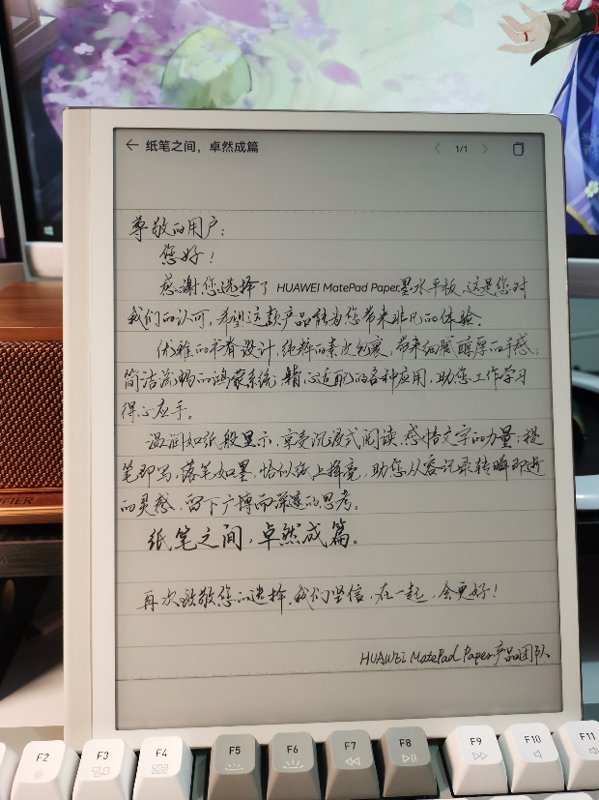 纸笔之间，卓然成篇
1/1
尊敬的用户：
您好！
感谢您选择了 HUAWEI MatePad Paper墨水平板，这是您对
我们的认可，希望这款产品能为您带来非凡的体验。
优雅的书脊设计，纯粹的素皮包裹，带来细腻醇厚的手感；
简洁流畅的鸿蒙系统，精心适配的各种应用，助您工作学习
得心应手。
温润如纸般显示，享受沉浸式阅读，感悟文字的力量；提
笔即写，落笔如墨，恰似纸上挥毫，助您从容记录转瞬即逝
的灵愁，留下广博而深远的思考。
纸笔之间，卓然成篇。
再次致敬您的选择，我们坚信，在一起，会更好！
HUAWEI MatePad Paper产品团队
IFIER
F2 F3 F4 F5 F6 F7 F8 F9 F10 F11